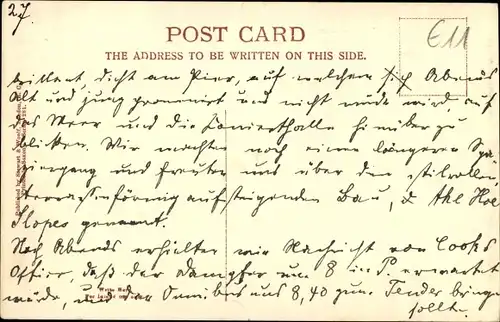 27.
POST CARD
THE ADDRESS TO BE WRITTEN ON THIS SIDE.
E11
dicht am Pier, auf welchem sich Abends
Alt und jung promenirt und nicht müde wird auf
das Meer und die Concerthalle hinüber zu
blicken. Wir machten noch einen längeren Spa
ziergang und freuten uns über den stilvollen
terrassenförmig aufsteigenden Bau, d. the Hoe
Slopes genannt.
Noch Abends erhielten wir Nachricht von Cooks
Office, daß der Dampfer um 8 in P. erwartet
würde, und der Omnibus uns 8,40 zum Tender bringen
sollte.